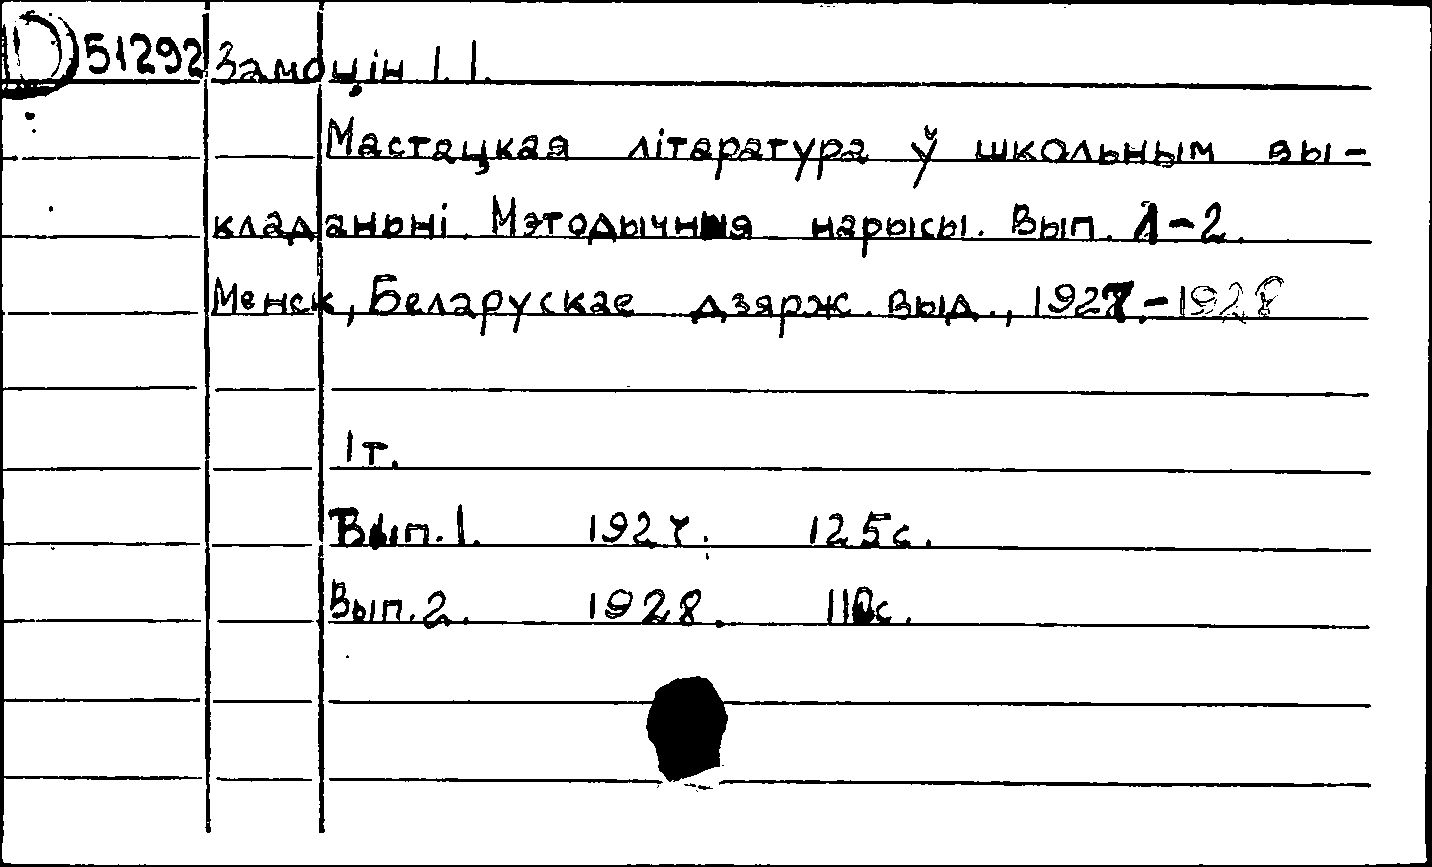 51292 Замоцін І. І.
Мастацкая літаратура ў школьным вы-
кладаньні. Мэтодычныя нарысы. Вып. 1-2.
Менск, Беларускае дзярж. выд., 1927.-1928
1 т.
Вып. 1. 1927. 125с.
Вып. 2. 1928. 110с.